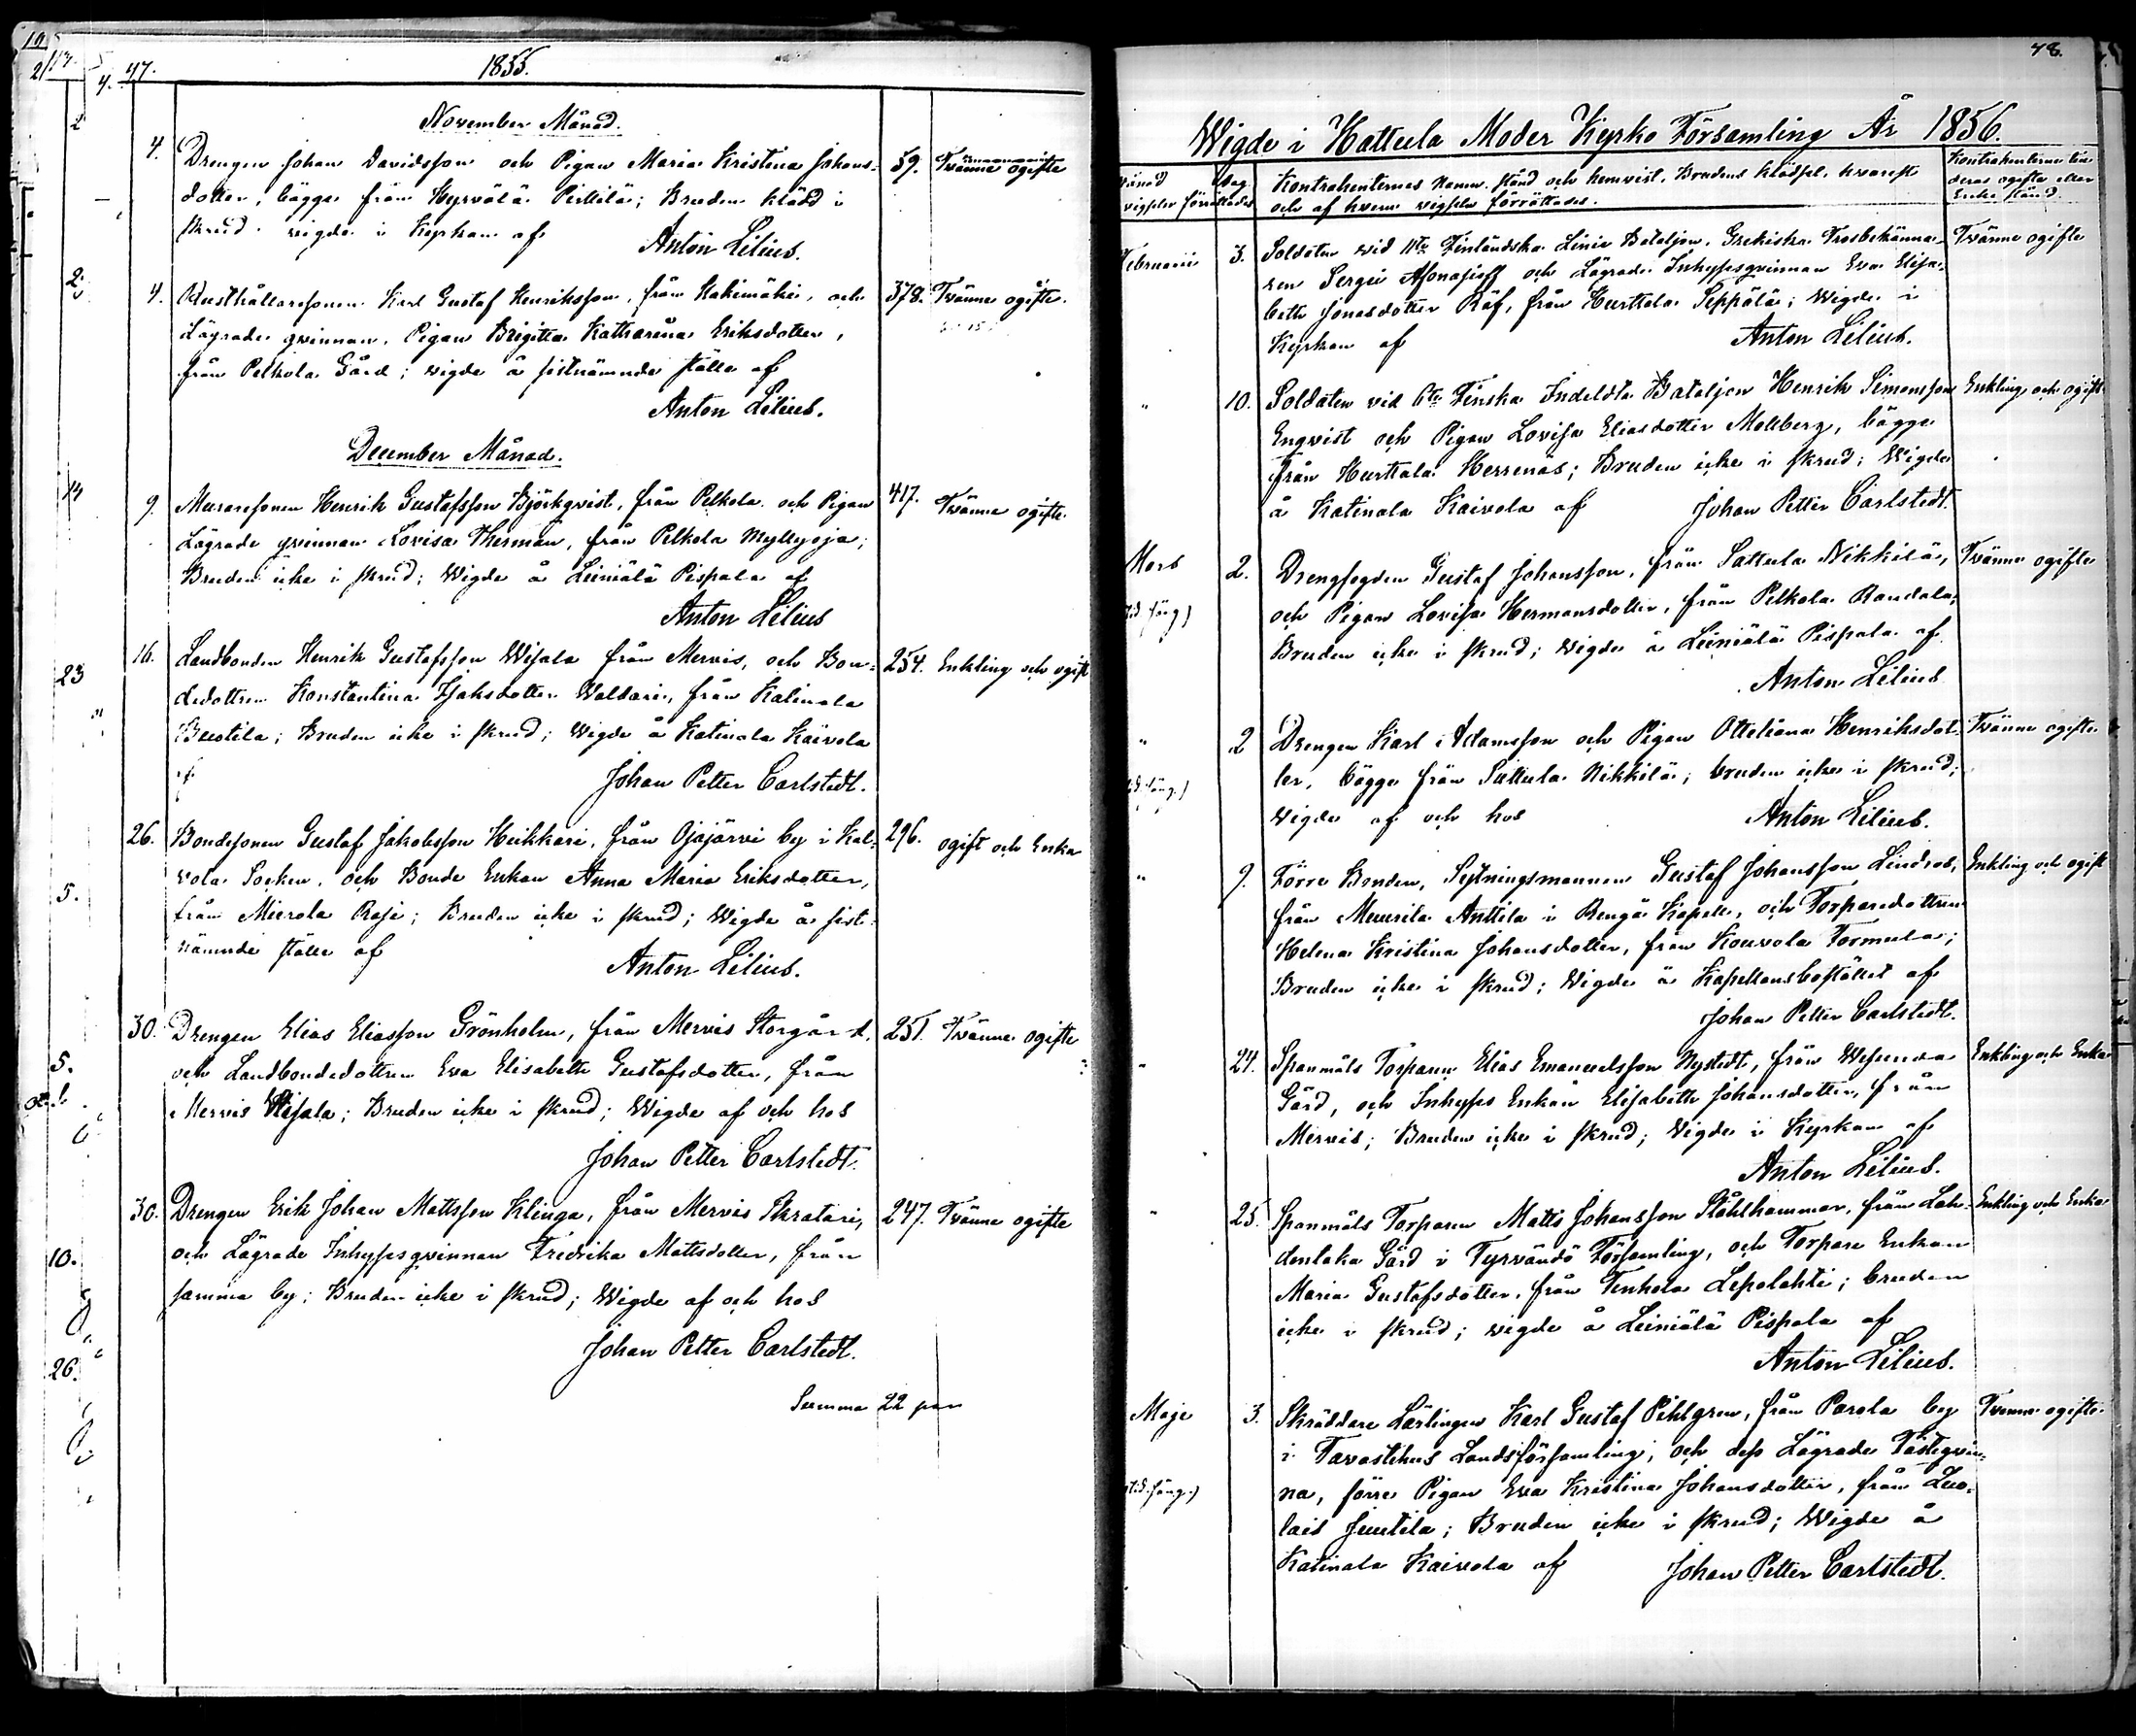 47.
1855.
November Månad.
4. Drengen Johan Davidsson och Pigan Maria Kristina Johans- 59. Tvänne ogifte
dotter, bägge från Hyrvälä Pietilä; Bruden klädd i
skrud. wigde i Kyrkan af
Anton Lilius.
4. Rusthållaresonen Karl Gustaf Henriksson, från Hakimäki, och 378. Tvänne ogifte.
Lägrade qvinnan, Pigan Brigitta Katharina Eriksdotter,
från Pelkola Gård; wigde å sistnämnde ställe af
Anton Lilius.
December Månad.
9. Muraresonen Henrik Gustafsson Björkqvist, från Pelkola och Pigan 417. Tvänne ogifte.
Lägrade qvinnan Lovisa Therman, från Pelkola Myllyoja;
Bruden icke i skrud; Wigde å Leiniälä Pispala af
Anton Lilius
16. Landbonden Henrik Gustafsson Wisala från Mervis, och Bon- 254. Enkling och ogift
dedottren Konstantina Isaksdotter Waldari, från Katinala
Buotila; Bruden icke i skrud; Wigde å Katinala Kaivola
af
Johan Petter Carlstedt.
26. Bondesonen Gustaf Jakobsson Heikkari, från Ojajärvi by i Kal- 296. ogift och Enka
vola Socken, och Bonde Enkan Anna Maria Eriksdotter,
från Mierola Raji; Bruden icke i skrud; Wigde å sist-
nämnde ställe af
Anton Lilius.
30. Drengen Elias Eliasson Grönholm, från Mervis Storgård, 251. Tvänne ogifte
och Landbondedottren Eva Elisabeth Gustafsdotter, från
Mervis Wisala; Bruden icke i skrud; Wigde af och hos
Johan Petter Carlstedt.
30. Drengen Erik Johan Mattsson Klinga, från Mervis Skratari, 247. Tvänne ogifte
och Lägrade Inhysesqvinnan Fredrika Mattsdotter, från
samma by; Bruden icke i skrud; Wigde af och hos
Johan Petter Carlstedt.
Summa 22 par
48.
Wigde i Hattula Moder Kyrko Församling År 1856.
Månad Dag Kontrahenternes Namn, stånd och hemvist, Brudens klädsel, hvarest Kontrahenterne
vigseln förrättades och af hvem vigseln förrättades. deras ogifte eller
Enke stånd.
Februarii 3. Soldaten wid Finländska Linie Bataljon, Grekiska Trosbekänna- Tvänne ogifte
ren Sergei Afonasieff och Lägrade Inhysesqvinnan Eva Elisa-
beth Jonasdotter Räf, från Hurttala Seppälä; Wigde i
Kyrkan af
Anton Lilius.
" 10. Soldaten vid 6te Finska Indeldta Bataljon Henrik Simonsson Enkling och ogift
Engvist och Pigan Lovisa Eliasdotter Mallberg, bägge
från Hurttala Herrenäs; Bruden icke i skrud; Wigde
å Katinala Kaivola af
Johan Petter Carlstedt.
Mars 2. Drengfogden Gustaf Johansson, från Sattula Nikkilä, Tvänne ogifte
och Pigan Lovisa Hermansdotter, från Pelkola Randala;
Bruden icke i skrud; Wigde å Leiniälä Pispala af
Anton Lilius
" 2 Drengen Karl Adamsson och Pigan Otteliana Henriksdot- Tvänne ogifte
ter, bägge från Sattula Nikkilä; bruden icke i skrud;
Wigde af och hos
Anton Lilius.
" 9. Förre Bonden, Sytningsmannen Gustaf Johansson Lindroos, Enkling och ogift
från Muurila Anttila i Rengo Kapell, och Torparedottren
Helena Kristina Johansdotter, från Kouvola Tormula;
Bruden icke i skrud; Wigde å Kapellansbostället af
Johan Petter Carlstedt.
" 24. Spanmåls Torparen Elias Emanuelsson Nystedt, från Wesunda Enkling och Enka
Gård, och Inhyses Enkan Elisabeth Johansdotter, från
Mervis; Bruden icke i skrud; Wigde i Kyrkan af
Anton Lilius.
" 25. Spanmåls Torparen Matts Johansson Stålhammar, från Lah- Enkling och Enka
denlaka Gård i Tyrväntö Församling, och Torpare Enkan
Maria Gustafsdotter, från Tenhola Lepolahti; bruden
icke i skrud; wigde å Leiniälä Pispala af
Anton Lilius.
Maji 3. Skräddare Lärlingen Karl Gustaf Pihlgren, från Parola by Tvenne ogifte.
i Tavastehus Landsförsamling, och dess Lägrade Fästeqvin-
na, förre Pigan Eva Kristina Johansdotter, från Luo-
lais Juutila; Bruden icke i skrud; Wigde å
Katinala Kaivola af
Johan Petter Carlstedt.